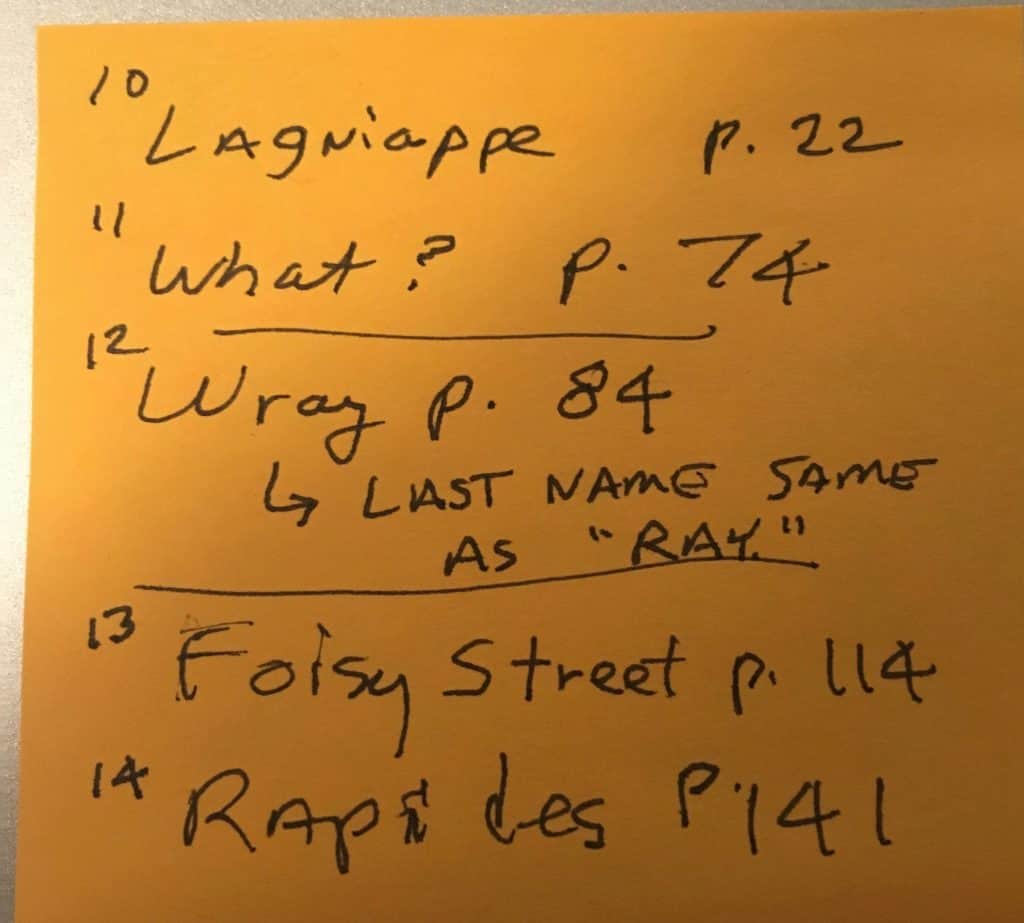 10
Lagniappe p. 22
11
What? p. 74
12
Wray p. 84
↳ LAST NAME SAME
AS "RAY."
13
Foisy Street p. 114
14
Rapides p. 141